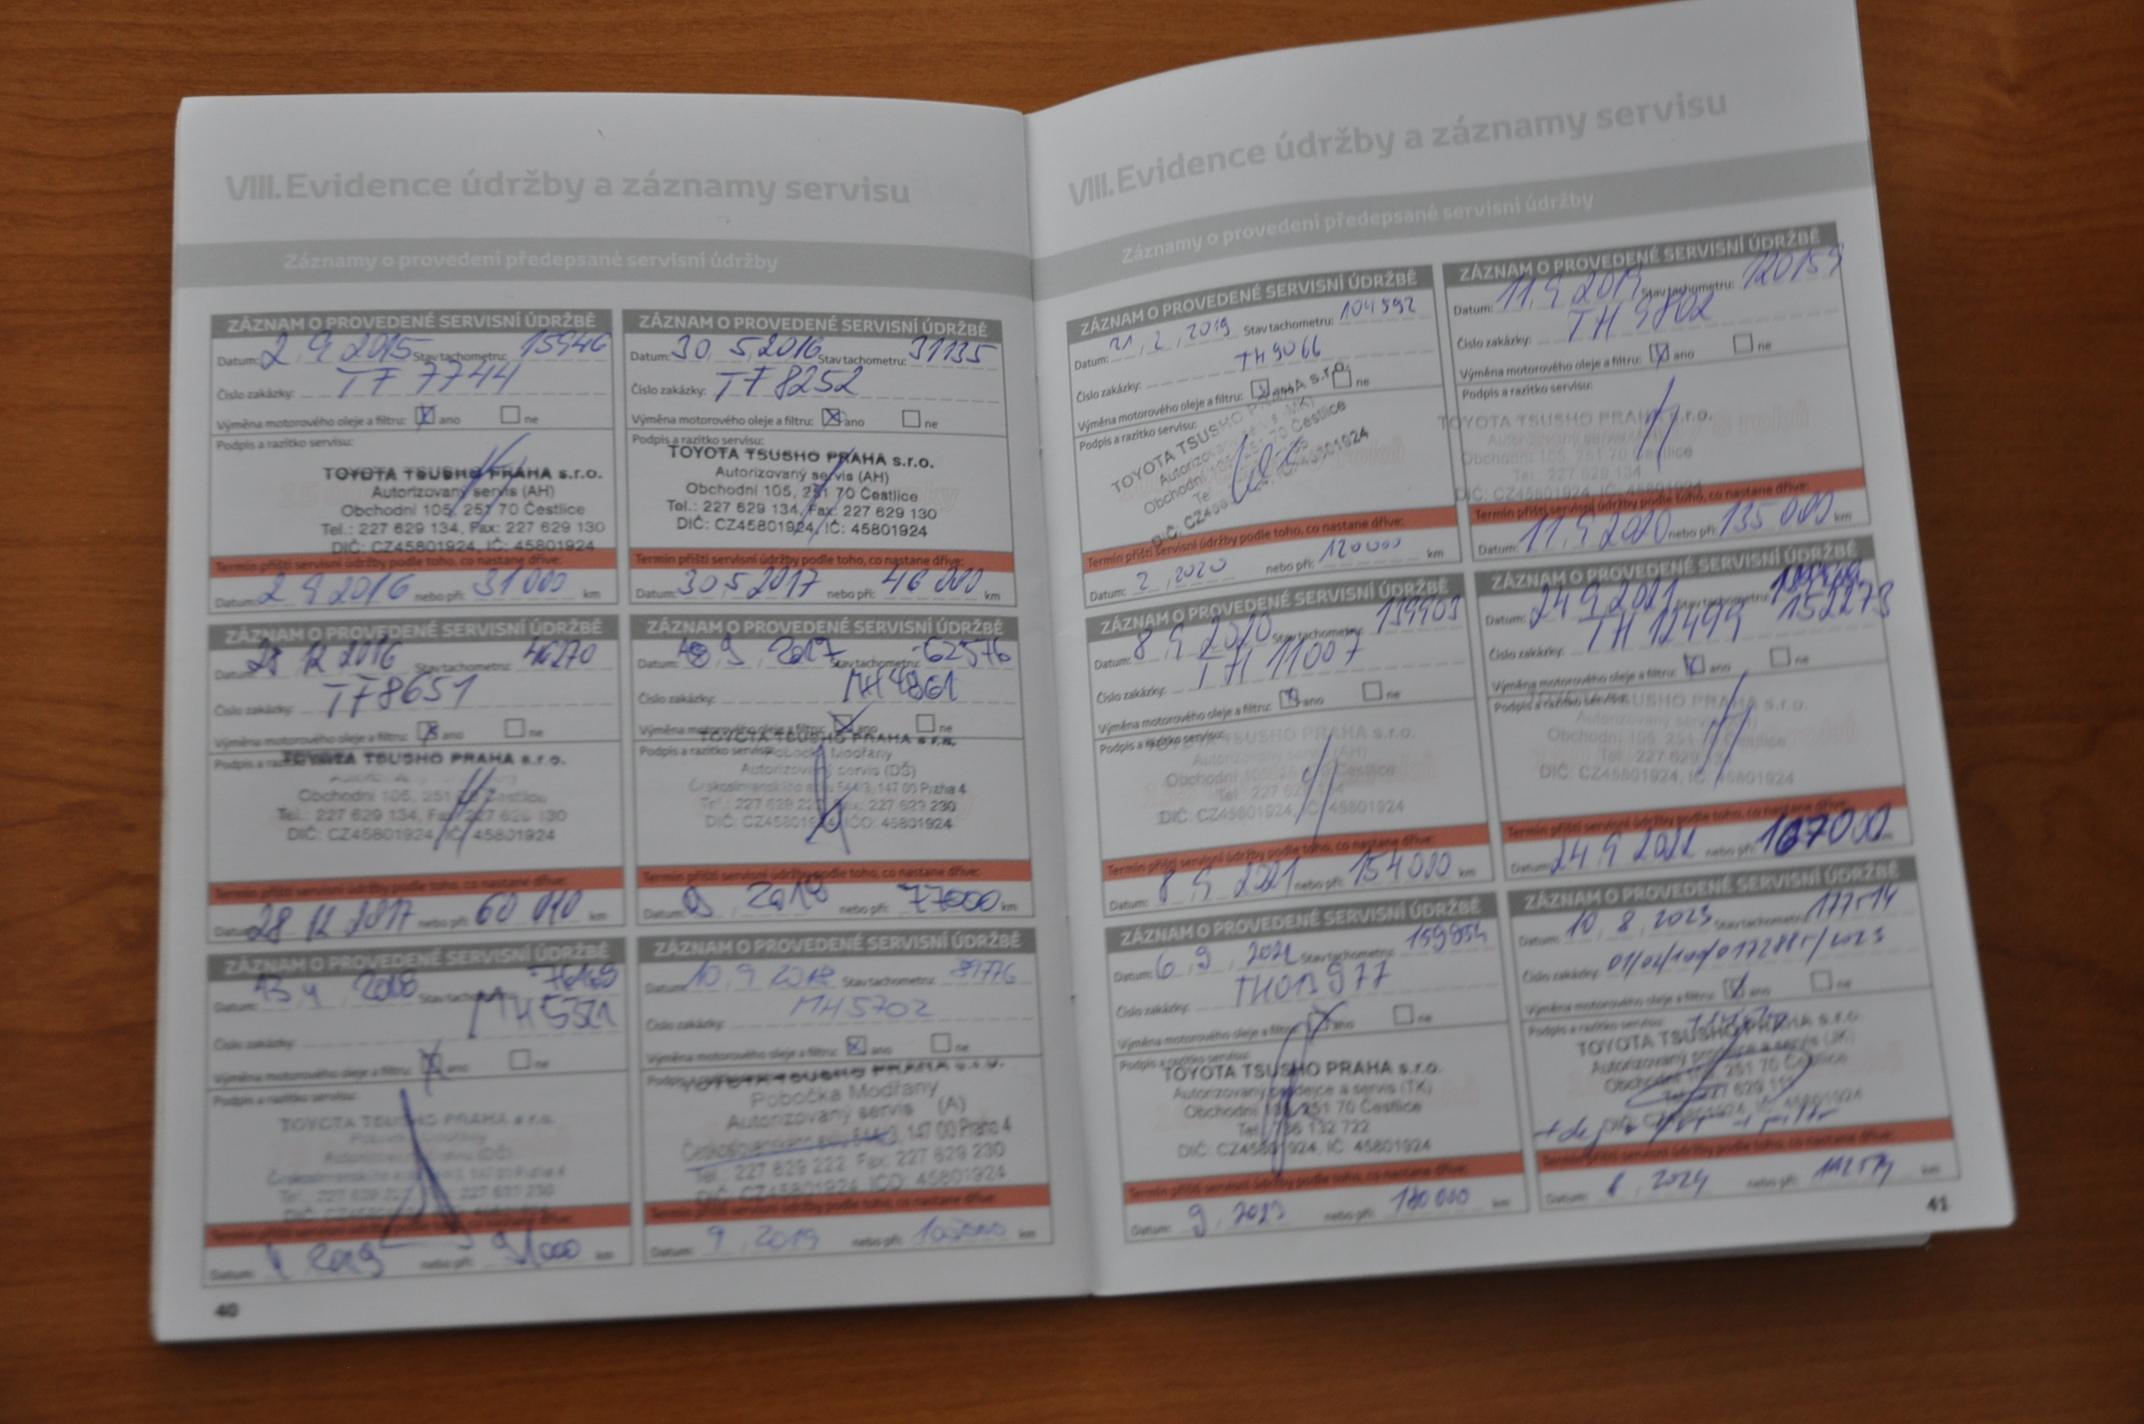 VIII. Evidence údržby a záznamy servisu
Záznamy o provedení předepsané servisní údržby
ZÁZNAM O PROVEDENÉ SERVISNÍ ÚDRŽBĚ
Datum: 2. 9. 2015 Stav tachometru: 15946
Číslo zakázky: TF 7744
Výměna motorového oleje a filtru: ano ne
Podpis a razítko servisu:
TOYOTA TSUSHO PRAHA s.r.o.
Autorizovaný servis (AH)
Obchodní 105, 251 70 Čestlice
Tel.: 227 629 134, Fax: 227 629 130
DIČ: CZ45801924, IČ: 45801924
Termín příští servisní údržby podle toho, co nastane dříve:
Datum: 2 9 2016 nebo při: 31 000 km
ZÁZNAM O PROVEDENÉ SERVISNÍ ÚDRŽBĚ
Datum: 30. 5. 2016 Stav tachometru: 31135
Číslo zakázky: TF 8252
Výměna motorového oleje a filtru: ano ne
Podpis a razítko servisu:
TOYOTA TSUSHO PRAHA s.r.o.
Autorizovaný servis (AH)
Obchodní 105, 251 70 Čestlice
Tel.: 227 629 134, Fax: 227 629 130
DIČ: CZ45801924, IČ: 45801924
Termín příští servisní údržby podle toho, co nastane dříve:
Datum: 30 5 2017 nebo při: 46 000 km
ZÁZNAM O PROVEDENÉ SERVISNÍ ÚDRŽBĚ
Datum: 28 12 2016 Stav tachometru: 46270
Číslo zakázky: TF8651
Výměna motorového oleje a filtru: ano ne
Podpis a razítko
TOYOTA TSUSHO PRAHA s.r.o.
Obchodní 105, 251 70 Čestlice
Tel.: 227 629 134, Fax: 227 629 130
DIČ: CZ45801924, IČ: 45801924
Termín příští servisní údržby podle toho, co nastane dříve:
Datum: 28 12 2017 nebo při: 60 000 km
ZÁZNAM O PROVEDENÉ SERVISNÍ ÚDRŽBĚ
Datum: 9 2017 Stav tachometru: 62576
Číslo zakázky: MH4861
Výměna motorového oleje a filtru: ano ne
TOYOTA TSUSHO PRAHA s.r.o.
Podpis a razítko servisu: Pobočka Modřany
Autorizovaný servis (DŠ)
Československého exilu 544/3, 147 00 Praha 4
Tel.: 227 629 222 Fax: 227 629 230
DIČ: CZ45801924, IČO: 45801924
Termín příští servisní údržby podle toho, co nastane dříve:
Datum: 9 2018 nebo při: 77000 km
ZÁZNAM O PROVEDENÉ SERVISNÍ ÚDRŽBĚ
Datum: 2018 Stav tachometru:
Číslo zakázky:
Výměna motorového oleje a filtru: ano ne
Podpis a razítko servisu:
TOYOTA TSUSHO PRAHA s.r.o.
Termín příští servisní údržby podle toho, co nastane dříve:
Datum: 2019 nebo při: 91000 km
ZÁZNAM O PROVEDENÉ SERVISNÍ ÚDRŽBĚ
Datum: 10. 9 2018 Stav tachometru:
MH5702
Číslo zakázky:
Výměna motorového oleje a filtru: ano ne
TOYOTA TSUSHO PRAHA s.r.o.
Pobočka Modřany
Autorizovaný servis (A)
Československého exilu 544/3, 147 00 Praha 4
Tel.: 227 629 222 Fax: 227 629 230
DIČ: CZ45801924, IČO: 45801924
Termín příští servisní údržby podle toho, co nastane dříve:
Datum: 9 2019 nebo při: km
40
VIII. Evidence údržby a záznamy servisu
Záznamy o provedení předepsané servisní údržby
ZÁZNAM O PROVEDENÉ SERVISNÍ ÚDRŽBĚ
Datum: 21. 2. 2019 Stav tachometru: 104592
Číslo zakázky: TH9066
Výměna motorového oleje a filtru: ano ne
Podpis a razítko servisu:
TOYOTA TSUSHO PRAHA s.r.o.
Termín příští servisní údržby podle toho, co nastane dříve:
Datum: 2, 2020 nebo při: 120000 km
ZÁZNAM O PROVEDENÉ SERVISNÍ ÚDRŽBĚ
Datum: 11. 9 2019 Stav tachometru:
Číslo zakázky: TH 9802
Výměna motorového oleje a filtru: ano ne
Podpis a razítko servisu:
TOYOTA TSUSHO PRAHA s.r.o.
Obchodní 105, 251 70 Čestlice
Tel: 227 629 134
DIČ: CZ45801924, IČ: 45801924
Termín příští servisní údržby podle toho, co nastane dříve:
Datum: 11. 9 2020 nebo při: 135 000 km
ZÁZNAM O PROVEDENÉ SERVISNÍ ÚDRŽBĚ
Datum: 8 9 2020 Stav tachometru: 139903
Číslo zakázky: TH 11007
Výměna motorového oleje a filtru: ano ne
Podpis a razítko servisu:
TOYOTA TSUSHO PRAHA s.r.o.
Autorizovaný servis (AH)
DIČ: CZ45801924, IČ: 45801924
Termín příští servisní údržby podle toho, co nastane dříve:
Datum: 8 9 2021 nebo při: 154 000 km
ZÁZNAM O PROVEDENÉ SERVISNÍ ÚDRŽBĚ
Datum: 24 9 2021 Stav tachometru: 152273
Číslo zakázky: TH 12499
Výměna motorového oleje a filtru: ano ne
Podpis a razítko servisu:
TOYOTA TSUSHO PRAHA s.r.o.
Obchodní 105, 251 70 Čestlice
DIČ: CZ45801924, IČ: 45801924
Termín příští servisní údržby podle toho, co nastane dříve:
Datum: 24 9 2022 nebo při: 167000
ZÁZNAM O PROVEDENÉ SERVISNÍ ÚDRŽBĚ
Datum: 6. 9. 2022 Stav tachometru:
Číslo zakázky: TH013977
Výměna motorového oleje a filtru: ano ne
Podpis a razítko servisu:
TOYOTA TSUSHO PRAHA s.r.o.
Autorizovaný prodejce a servis (TK)
Obchodní 105, 251 70 Čestlice
Tel: 736 132 722
DIČ: CZ45801924, IČ: 45801924
Termín příští servisní údržby podle toho, co nastane dříve:
Datum: 9. 2023 nebo při: km
ZÁZNAM O PROVEDENÉ SERVISNÍ ÚDRŽBĚ
Datum: 10. 8. 2023 Stav tachometru:
Číslo zakázky:
Výměna motorového oleje a filtru: ano ne
Podpis a razítko servisu:
TOYOTA TSUSHO PRAHA s.r.o.
Autorizovaný prodejce a servis (JK)
Obchodní 105, 251 70 Čestlice
Termín příští servisní údržby podle toho, co nastane dříve:
Datum: 2024 nebo při: km
41